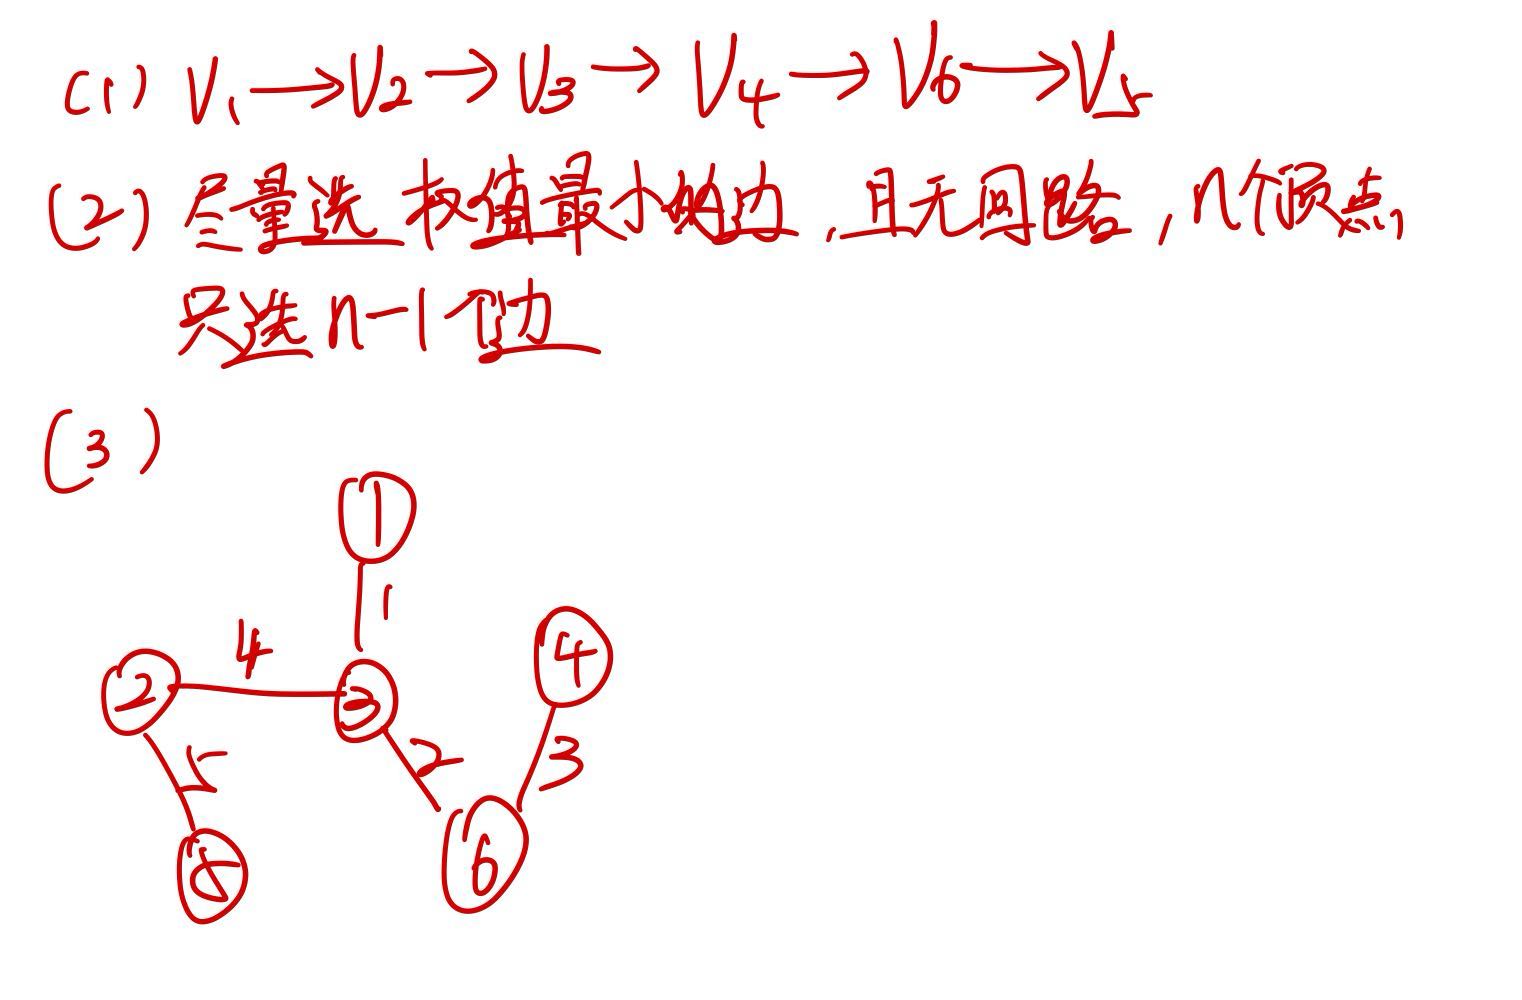 (1) V1 → V2 → V3 → V4 → V6 → V5
(2) 尽量选权值最小的边,且无回路,n个顶点,
只选n-1个边
(3)
1
1
4
4
2
3
5
2
3
6
5